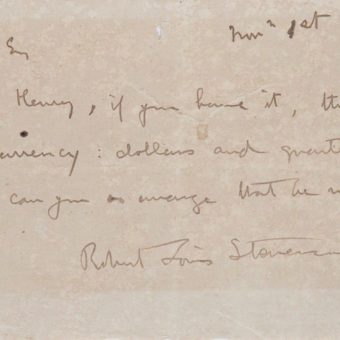 Novr 1st
Henry, if you have it, th
urrency: dollars and quart
can you so arrange that he
Robert Louis Stevenson